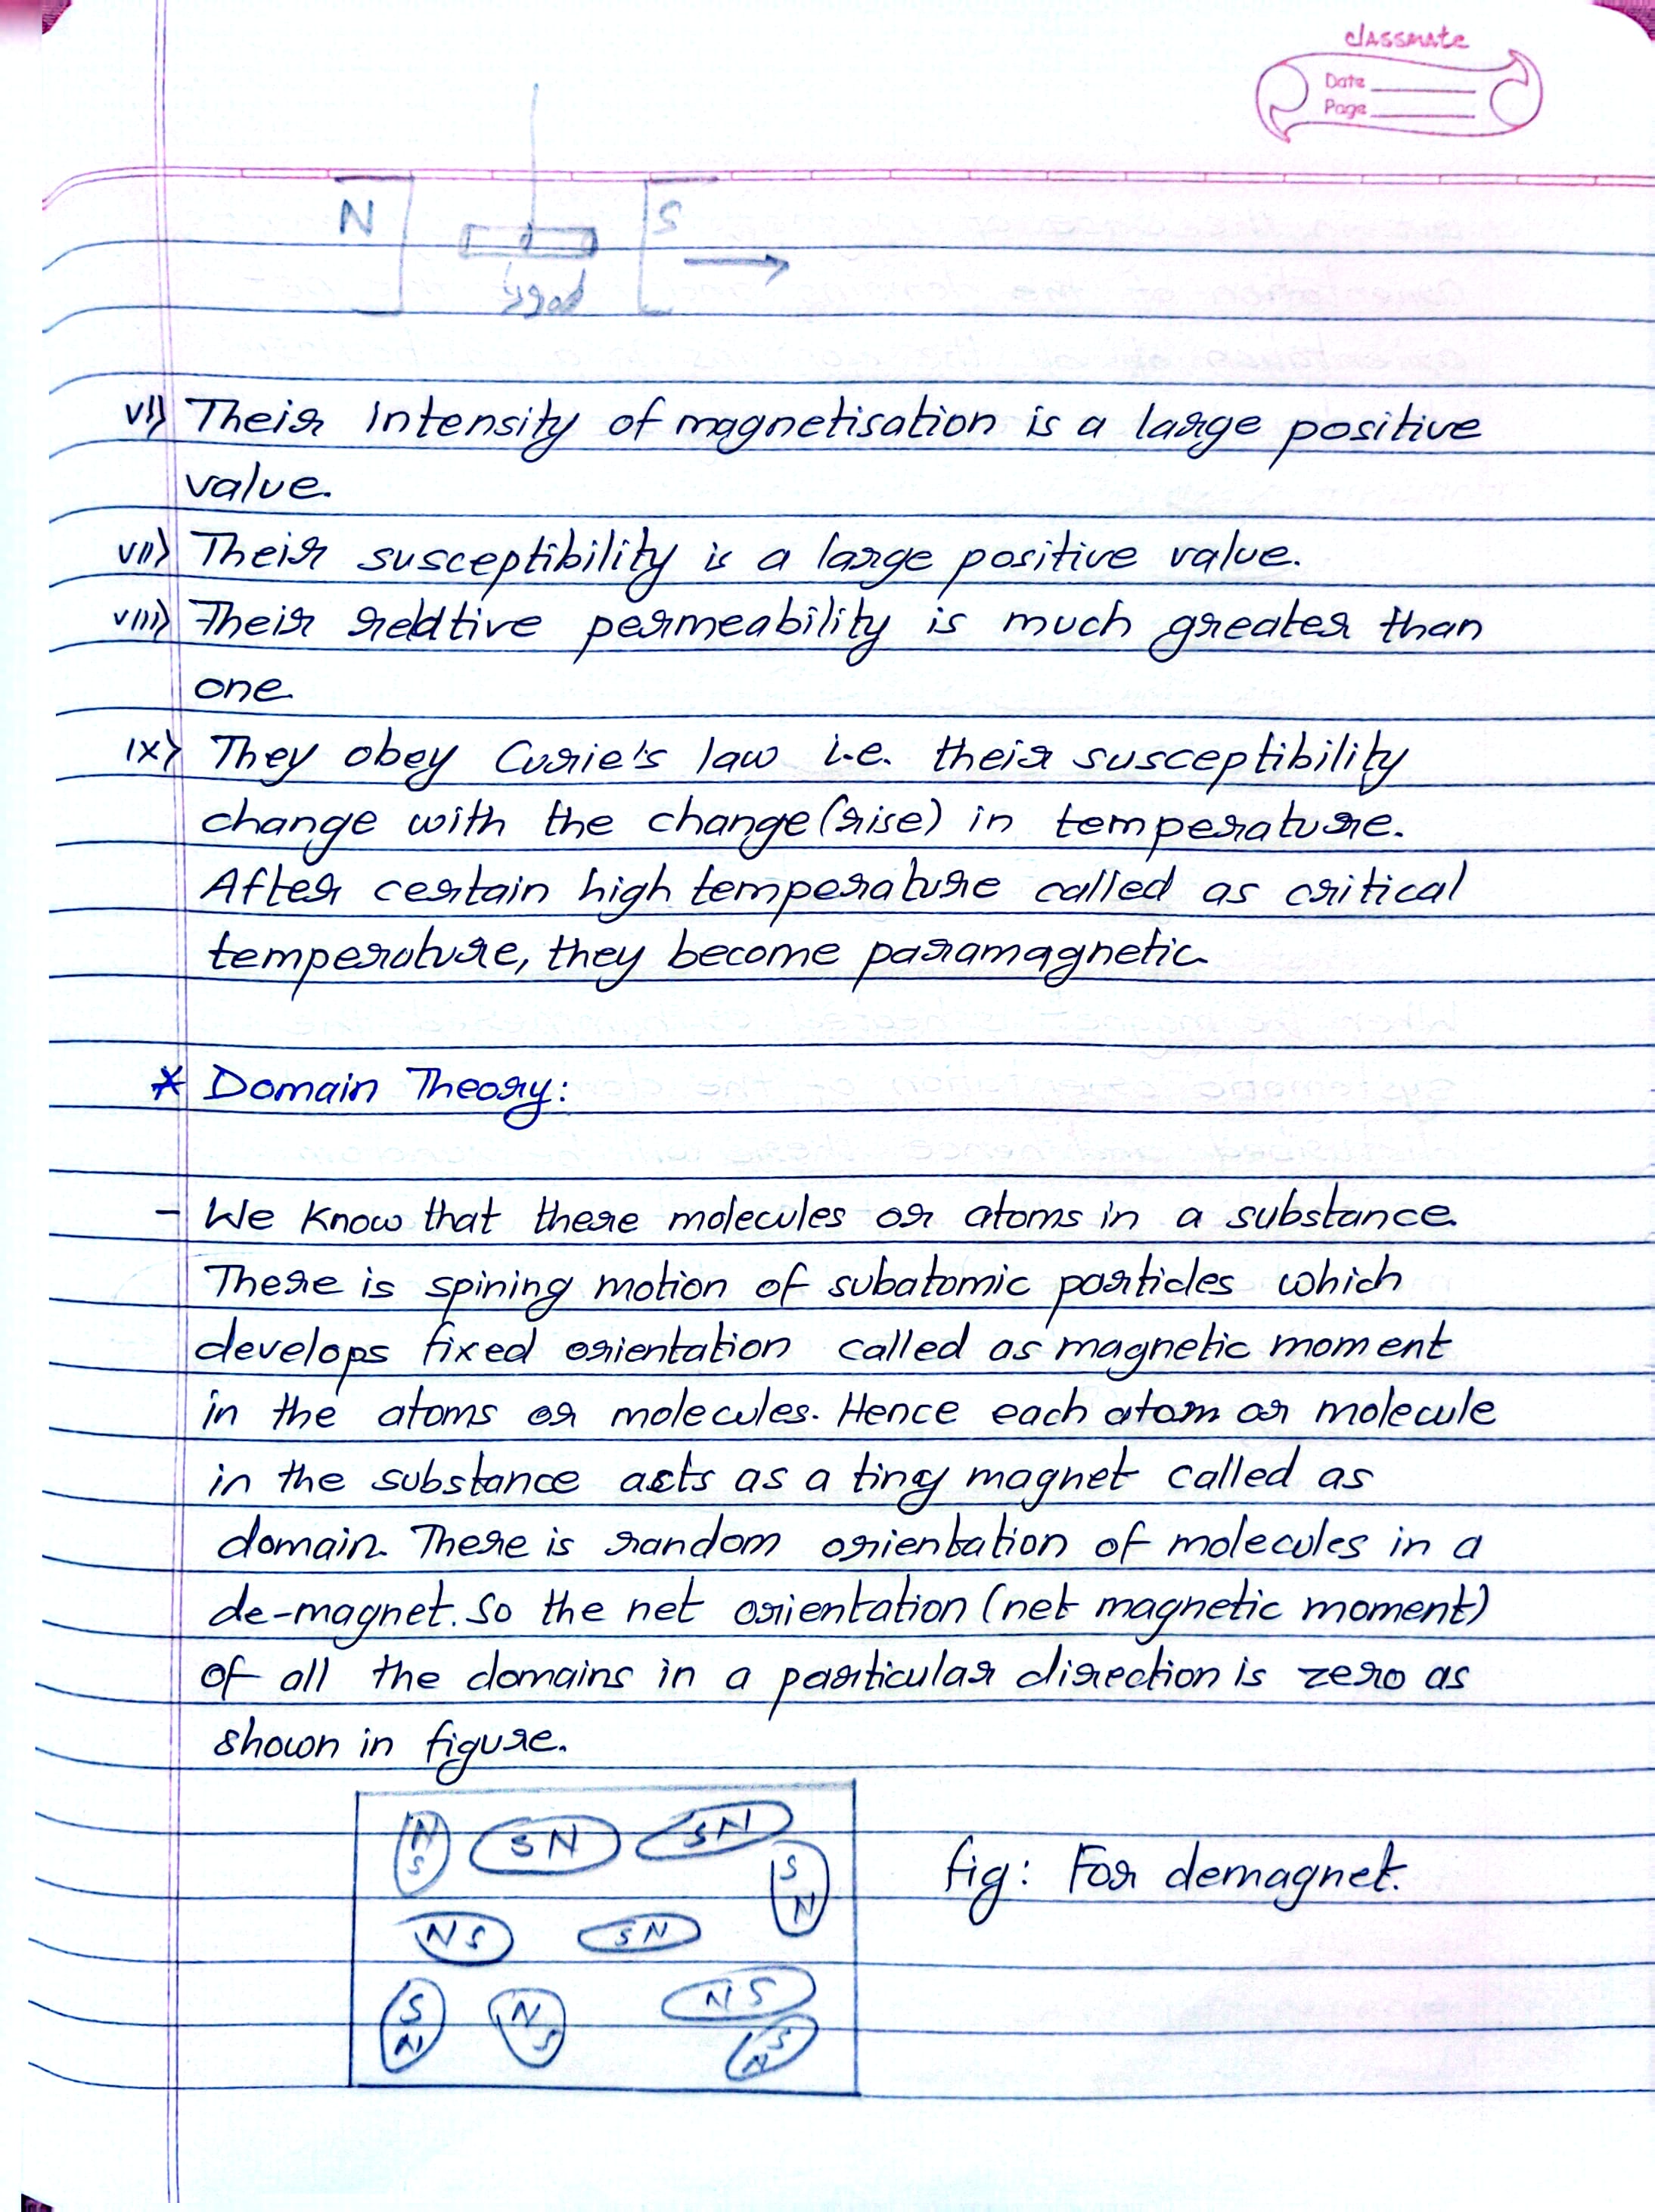 classmate
Date
Page
N S
rod
vi) Their Intensity of magnetisation is a large positive
value.
vii) Their susceptibility is a large positive value.
viii) Their relative permeability is much greater than
one.
ix) They obey Curie's law i.e. their susceptibility
change with the change (rise) in temperature.
After certain high temperature called as critical
temperature, they become paramagnetic.
* Domain Theory:
- We know that there molecules or atoms in a substance.
There is spining motion of subatomic particles which
develops fixed orientation called as magnetic moment
in the atoms or molecules. Hence each atom or molecule
in the substance acts as a tiny magnet called as
domain. There is random orientation of molecules in a
de-magnet. So the net orientation (net magnetic moment)
of all the domains in a particular direction is zero as
shown in figure.
N S SN SN
S N
fig: For demagnet.
NS SN
S N N S NS
N S